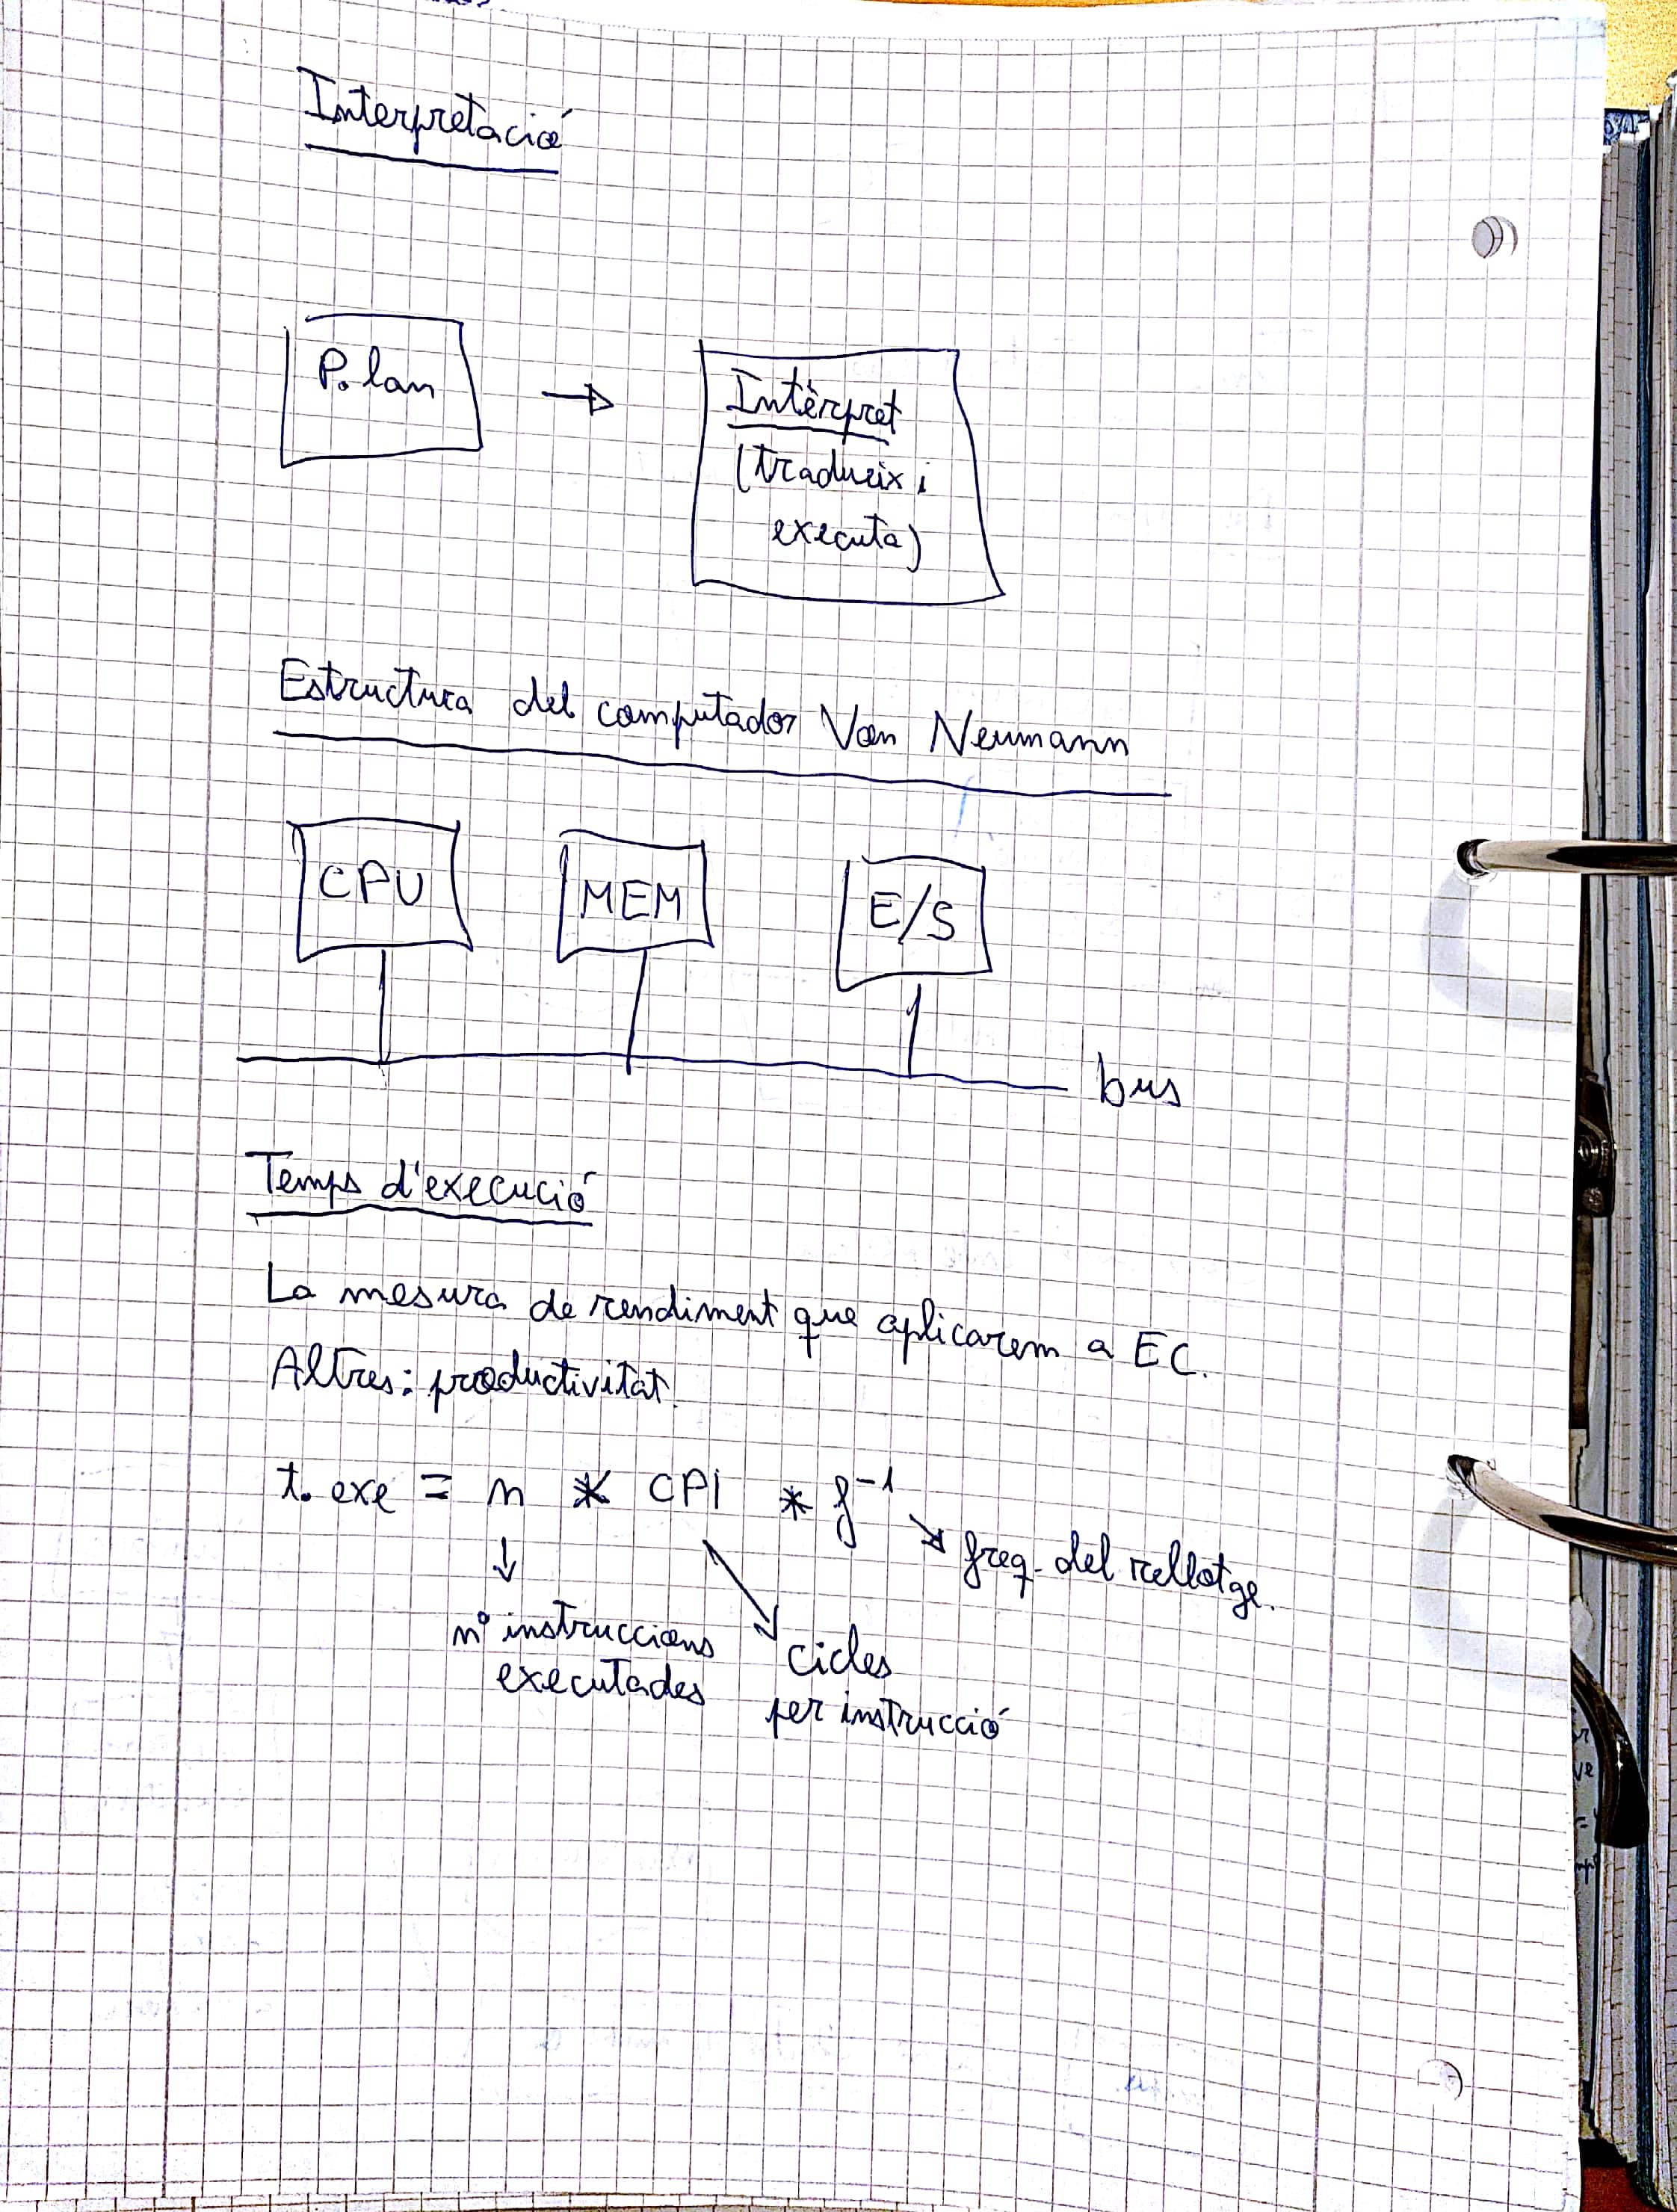 Interpretació
P. lan
→
Intèrpret
(tradueix i
executa)
Estructura del computador Von Neumann
CPU
MEM
E/S
bus
Temps d'execució
La mesura de rendiment que aplicarem a EC.
Altres: productivitat.
t. exe = n * CPI * f⁻¹
freq. del rellotge.
nº instruccions
executades
cicles
per instrucció